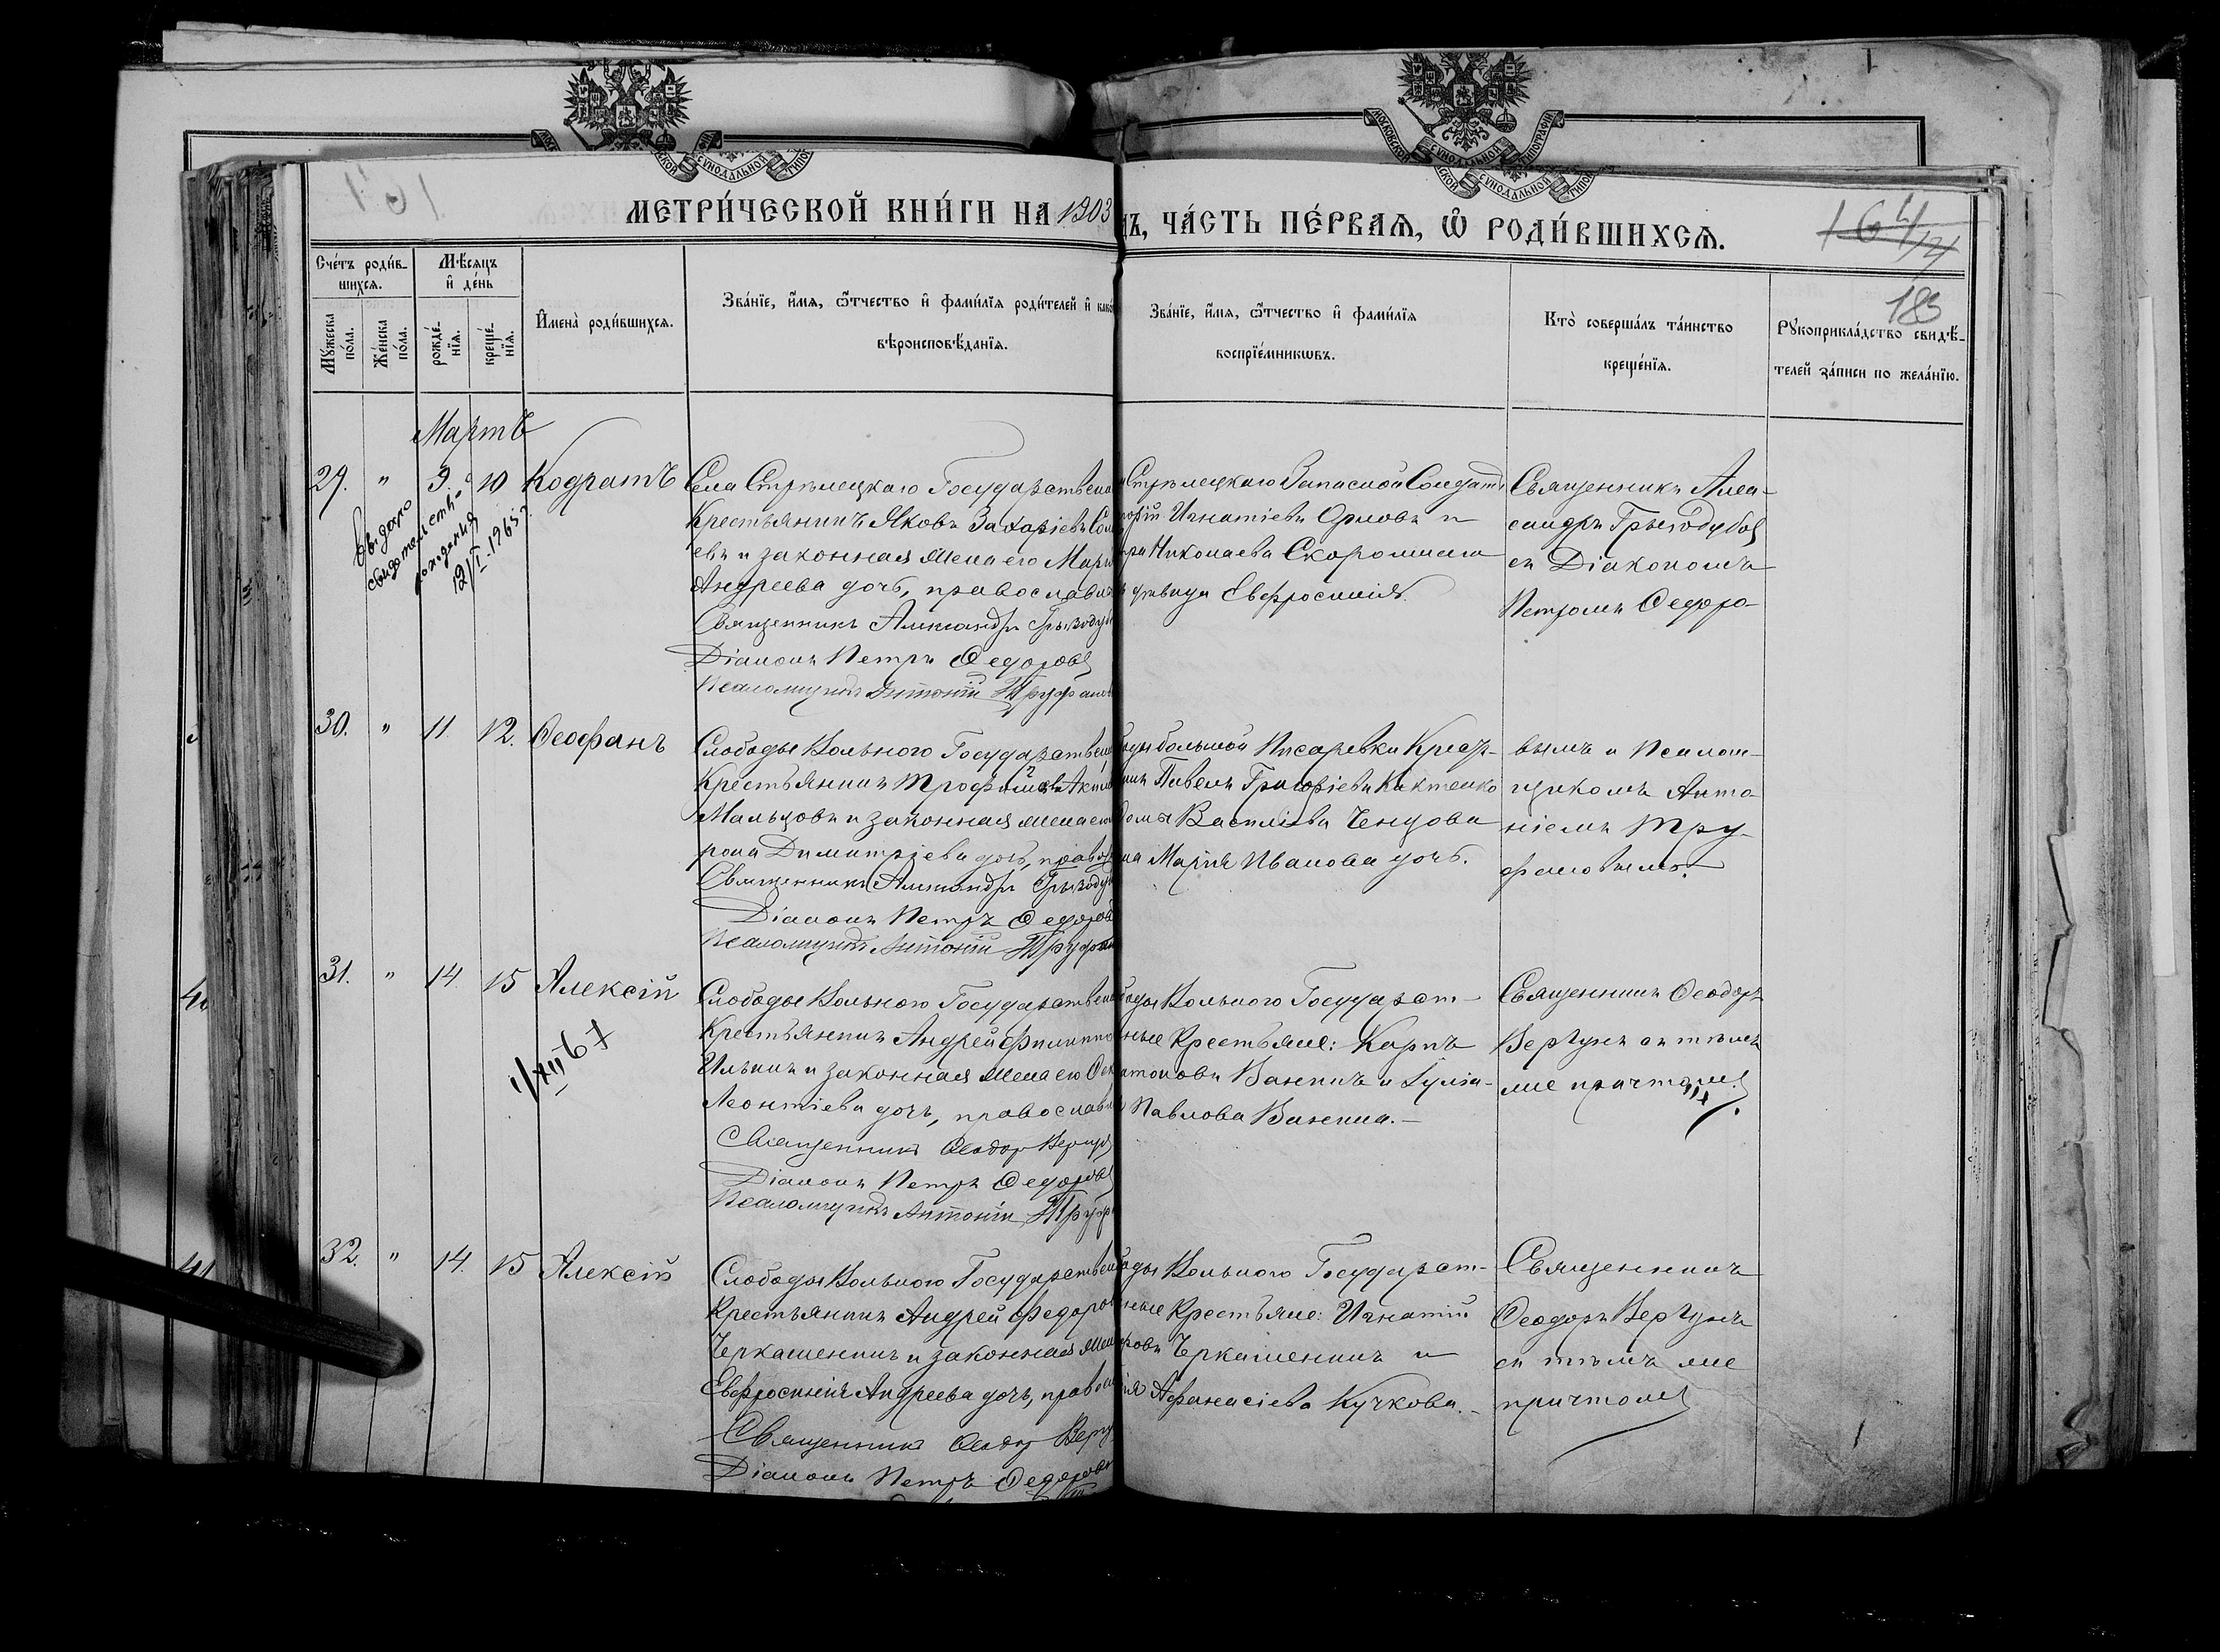 МЕТРИ́ЧЕСКОЙ КНИ́ГИ НА 1903
ЧА́СТЬ ПЕ́РВАЯ, Ѡ҆ РОДИ́ВШИХСЯ.
164
183
Сче́тъ роди́в-
шихся.
Мѣ́сяцъ
и҆ де́нь
Му́жеска
по́ла.
Же́нска
по́ла.
рожде́-
нїя.
креще́-
нїя.
И҆мена̀ роди́вшихся.
Зва́нїе, и҆́мя, ѻ҆́тчество и҆ фами́лїя роди́телей и҆
вѣроисповѣ́данїя.
Зва́нїе, и҆́мя, ѻ҆́тчество и҆ фами́лїя
воспрїе́мникωвъ.
Кто̀ соверша́лъ та́инство
креще́нїя.
Рꙋкоприкла́дство свидѣ́-
телей за́писи по жела́нїю.
Мартъ
29. " 9. 10 Кодратъ
Села Стрѣлецкаго Государствен
Крестьянинъ Яковъ Захаріевъ
евъ и законная жена его Мари
Андреева дочь, православн
Священникъ Александръ Грызодуб
Діаконъ Петръ Ѳедоровъ
Псаломщикъ Антоній Труфанов
Стрѣлецкаго Запасной Солдатъ
Игнатіевъ Орловъ и
Николаева Скоро
дѣвица Евфросинія.
Священникъ Алек-
сандръ Грызодубов
съ Діакономъ
Петромъ Ѳедоро-
Выдано
свидетельст-
рождения
12/I-1965 г.
30. " 11. 12. Ѳеофанъ
Слободы Вольного Государствен
Крестьянинъ Трофимъ
Мальцовъ и законная жена его
Димитріева дочь, правос
Священникъ Александръ Грызоду
Діаконъ Петръ Ѳедоров
Псаломщикъ Антоній Труфан
большой Писаревки Кресть-
Павелъ Григоріевъ
Василіева Ченцова
Марія Иванова дочь.
вымъ и Псалом-
щикомъ Анто-
ніемъ Тру-
фановымъ.
31. " 14. 15 Алексій
Слободы Вольного Государствен
Крестьянинъ Андрей Филиппо
Ильинъ и законная жена его
Леонтіева дочь, православн
Священникъ Ѳеодоръ Вергунъ
Діаконъ Петръ Ѳедоровъ
Псаломщикъ Антоній Труф
Вольного Государст-
Крестьяне: Карпъ
Ванинъ и Іулія-
Павлова Ванина.-
Священникъ Ѳеодоръ
Вергунъ съ тѣмъ
же причтомъ.
32. " 14. 15 Алексій
Слободы Вольного Государствен
Крестьянинъ Андрей Федоро
Черкашенинъ и законная жен
Евфросинія Андреева дочь, право
Священникъ Ѳеодор Верг
Діаконъ Петръ Ѳедоров
Вольного Государст-
Крестьяне: Игнатій
Черкашенинъ и
Афанасіева Кучкова.-
Священникъ
Ѳеодоръ Вергунъ
съ тѣмъ же
причтомъ